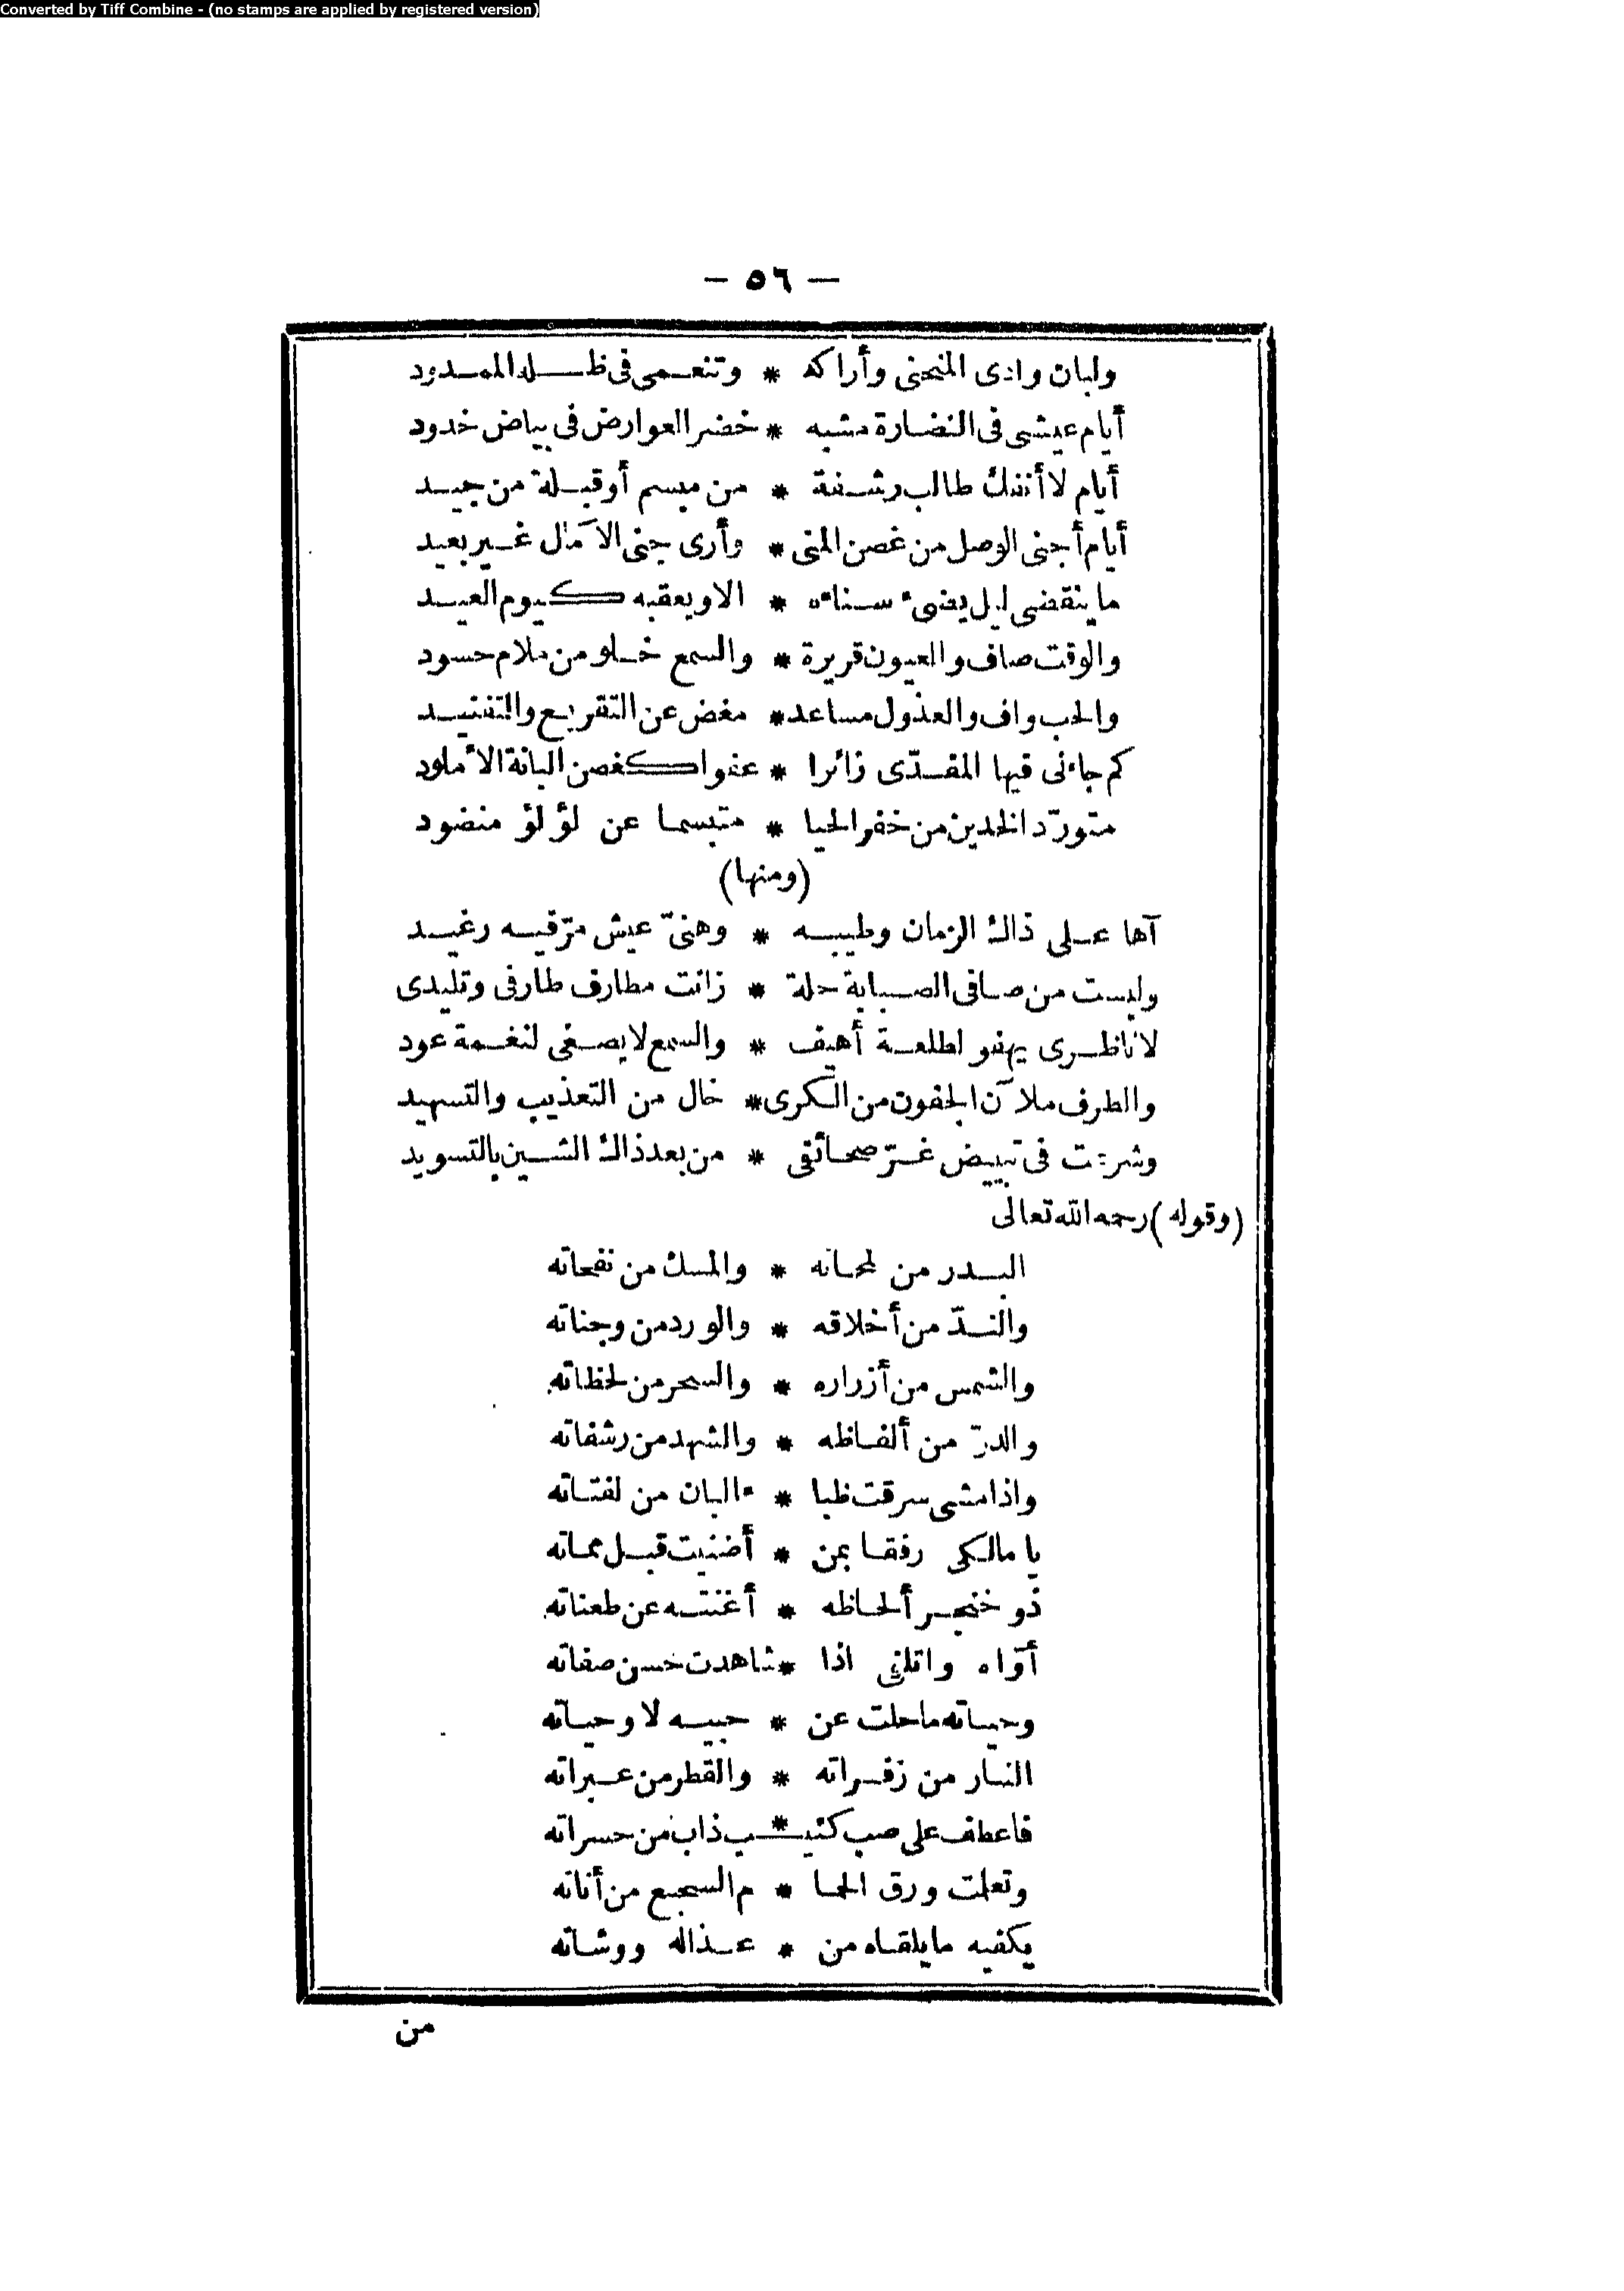 Converted by Tiff Combine - (no stamps are applied by registered version)
— ٥٦ —
ولبان وادى المنحنى وأراكه * وتنعمى فى ظله الممدود
أيام عيشى فى النضارة مشبه * خضر العوارض فى بياض خدود
أيام لا أنفك طالب رشفة * من مبسم أو قبلة من جيد
أيام أجنى الوصل من غصن المنى * وأرى جنى الآمال غير بعيد
ما ينقضى ليل يضىء سناءه * الا ويعقبه كيوم العيد
والوقت صاف والعيون قريرة * والسمع خلو من ملام حسود
والحب واف والعذول مساعد * مغض عن التقريع والتفنيد
كم جاءنى فيها المفدّى زائرا * عفوا كغصن البانة الأملود
متورّد الخدين من خفر الحيا * متبسما عن لؤلؤ منضود
(ومنها)
آها على ذاك الزمان وطيبه * وهنىّ عيش مرّ فيه رغيد
ولبست من صافى الصبابة حلة * زانت مطارف طارفى وتليدى
لا ناظرى يهفو لطلعة أهيف * والسمع لا يصغى لنغمة عود
والطرف ملآن الجفون من الكرى * خال من التعذيب والتسهيد
وشرعت فى تبييض غرّ صحائفى * من بعد ذاك الشين بالتسويد
(وقوله) رحمه الله تعالى
البدر من لمحاته * والمسك من نفحاته
والندّ من أخلاقه * والورد من وجناته
والشمس من أزراره * والسحر من لحظاته
والدرّ من ألفاظه * والشهد من رشفاته
واذا مشى سرقت ظبا * ء البان من لفتاته
يا مالكى رفقا بمن * أضنيت قبل مماته
ذو خنجر ألحاظه * أغنته عن طعناته
أوّاه واتلفى اذا * شاهدت حسن صفاته
وحياته ما حلت عن * حبيه لا وحياته
النار من زفراته * والقطر من عبراته
فاعطف على صب كئيـ * ـب ذاب من حسراته
وتعلمت ورق الحما * م السجع من أناته
يكفيه ما يلقاه من * عذاله ووشاته
من